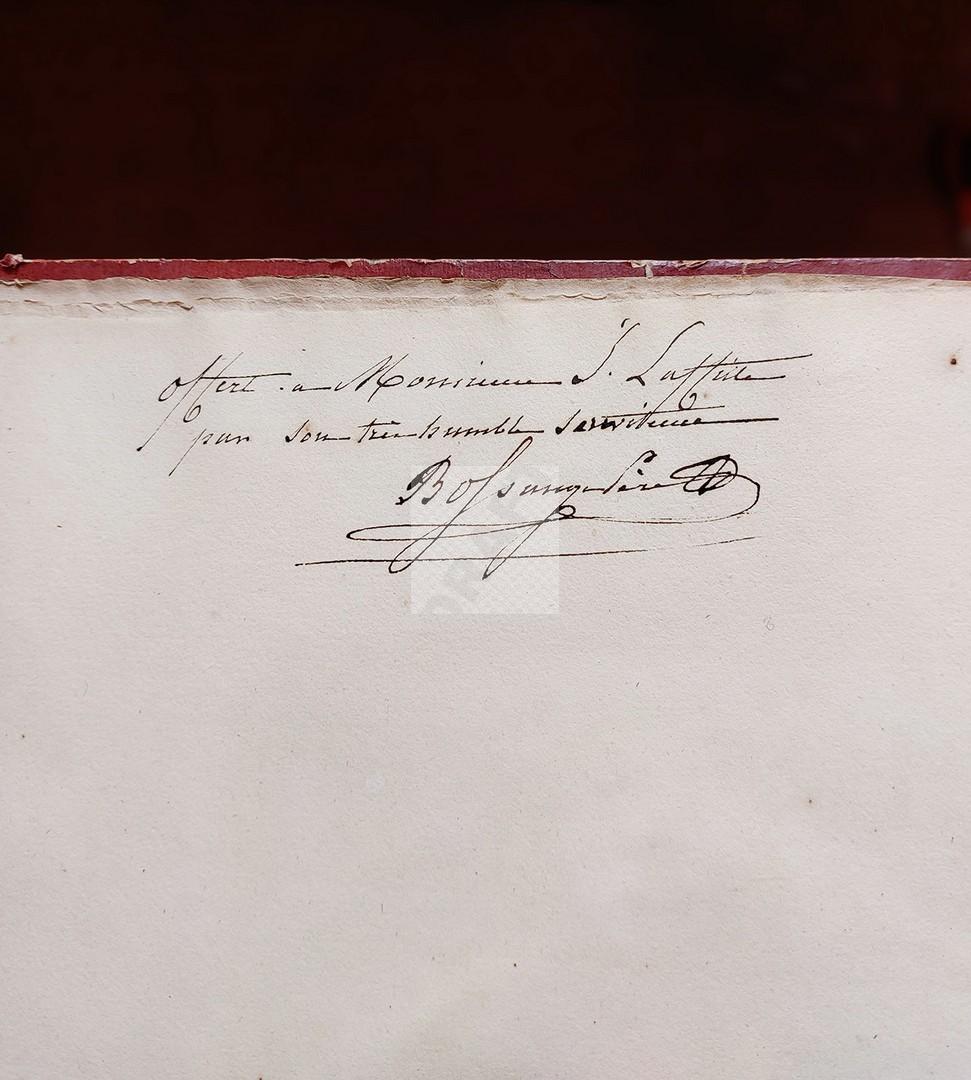 offert a Monsieur J. Laffitte
par son très humble serviteur
Bossange Père